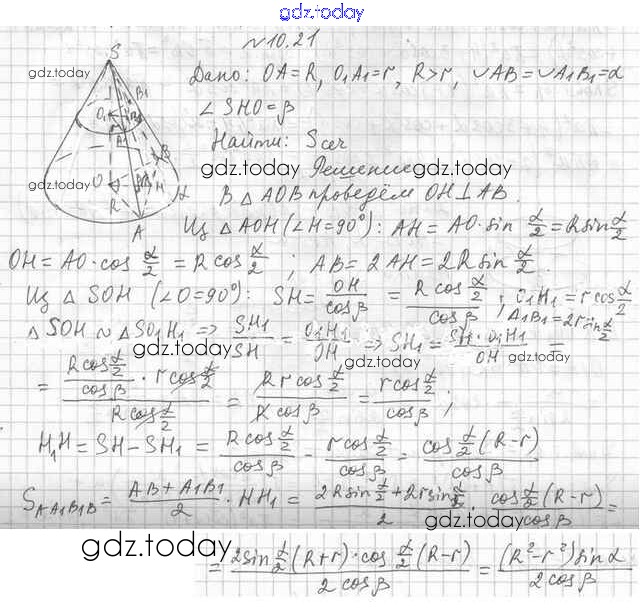 gdz.today
№10.21
Дано: OA=R, O₁A₁=r, R>r, ∪AB=∪A₁B₁=α
gdz.today
∠SHO=β
Найти: Sсеч
gdz.today
Решение
В △AOB проведём OH⊥AB.
Из △AOH (∠H=90°): AH=AO·sin α/2 = R sin α/2
OH=AO·cos α/2 = R cos α/2 ; AB=2AH=2R sin α/2.
Из △SOH (∠O=90°): SH = OH/cosβ = (R cos α/2)/cosβ ; O₁H₁=r cos α/2
A₁B₁=2r sin α/2
△SOH ∾ △SO₁H₁ ⇒ SH₁/SH = O₁H₁/OH ⇒ SH₁ = (SH·O₁H₁)/OH =
= ((R cos α/2)/cosβ · r cos α/2)/(R cos α/2) = (R r cos α/2)/(R cosβ) = (r cos α/2)/cosβ ;
H₁H = SH−SH₁ = (R cos α/2)/cosβ − (r cos α/2)/cosβ = (cos α/2 (R−r))/cosβ
S AA₁B₁B = (AB+A₁B₁)/2 · HH₁ = (2R sin α/2 + 2r sin α/2)/2 · (cos α/2 (R−r))/cosβ =
= (2 sin α/2 (R+r)·cos α/2 (R−r))/(2cosβ) = ((R²−r²) sin α)/(2cosβ)
gdz.today